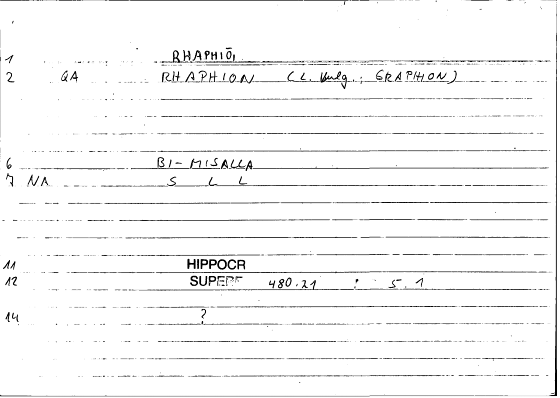 1 RHAPHIŌ,
2 QA RHAPHION (L. vulg.; GRAPHION)
6 BI-MISALLA
7 NA S L L
11 HIPPOCR
12 SUPERF 480.21 : 5.1
14 ?